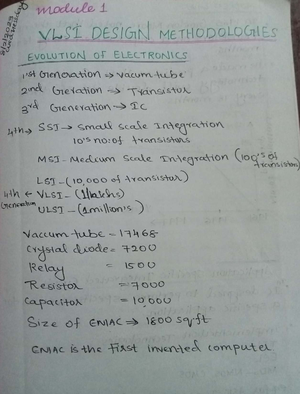 module 1
VLSI DESIGN METHODOLOGIES
EVOLUTION OF ELECTRONICS
1st Generation → vacum tube
2nd Geration → Transistor
3rd Generation → IC
4th → SSI → Small Scale Integration
10's no: of transistors
MSI - Medium Scale Integration (100's of transistors)
LSI - (10,000 of transistor)
4th Generation ← VLSI - (1 lakhs)
ULSI - (1 millions)
Vaccum tube - 17468
Crystal diode = 7200
Relay = 1500
Resistor = 7000
Capacitor = 10,000
Size of ENIAC ⇒ 1800 sq.ft
ENIAC is the first invented computer